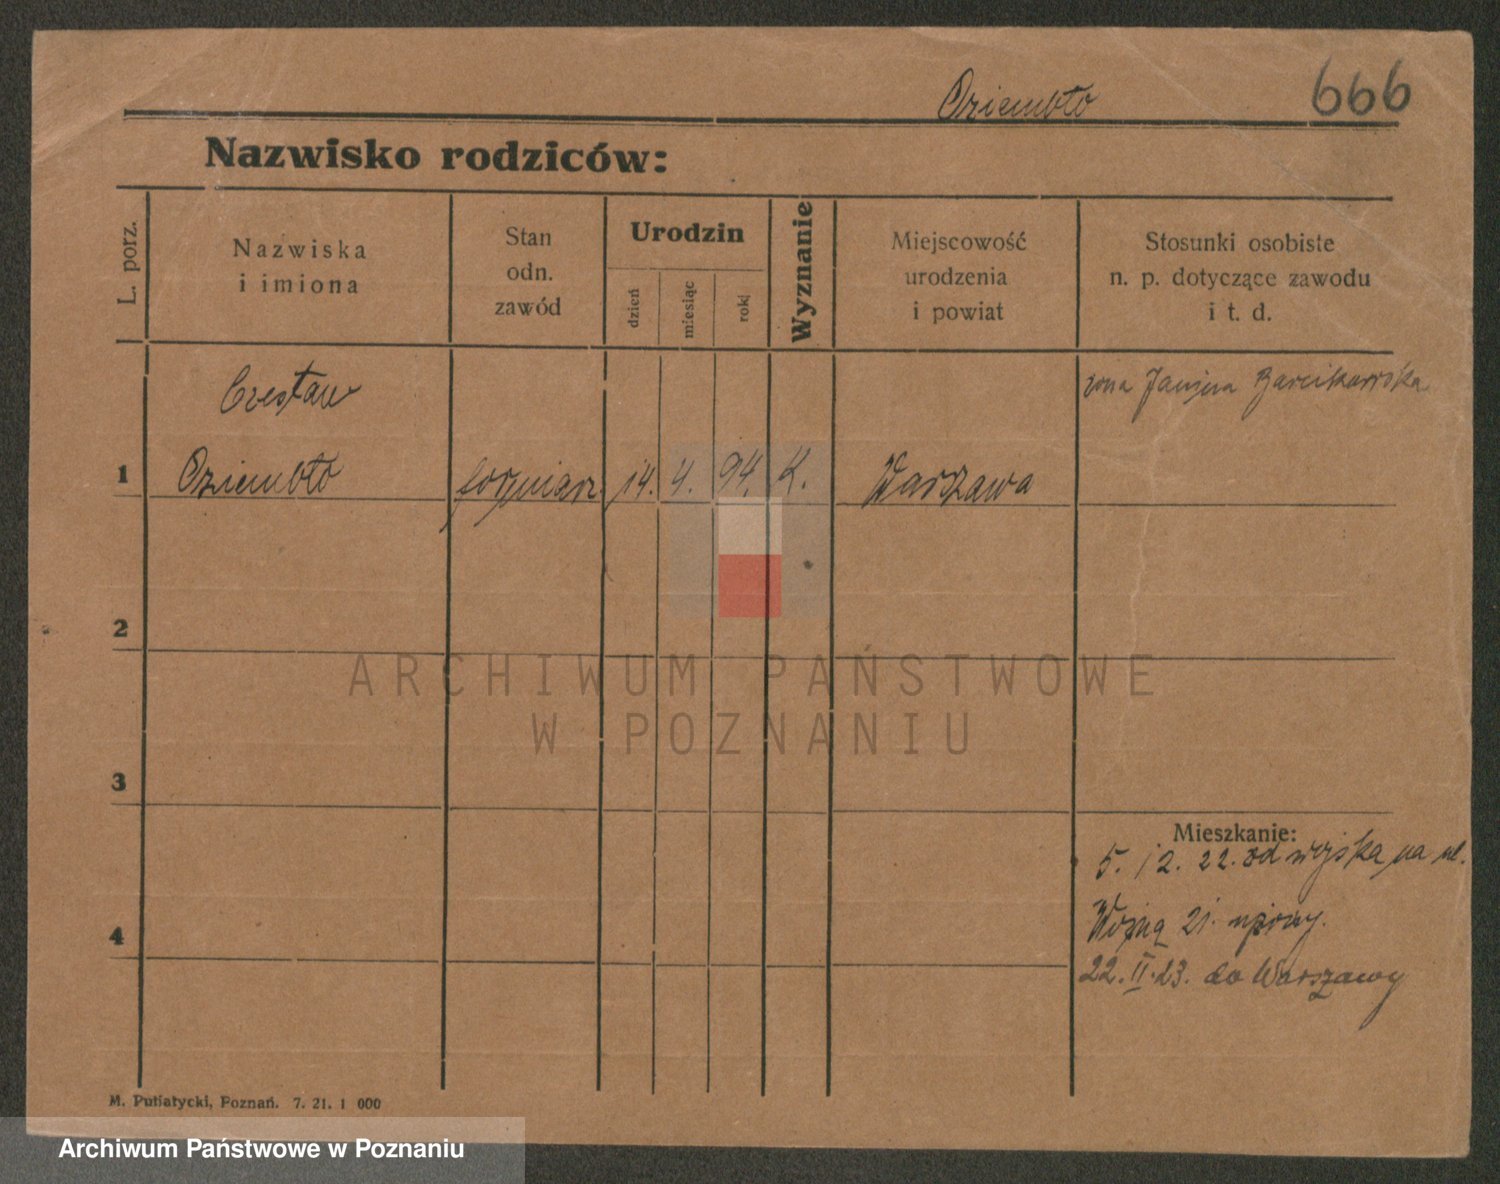 Dziembło 666
Nazwisko rodziców:
L. porz.
Nazwiska
i imiona
Stan
odn.
zawód
Urodzin
dzień
miesiąc
rok
Wyznanie
Miejscowość
urodzenia
i powiat
Stosunki osobiste
n. p. dotyczące zawodu
i t. d.
Czesław
żona Janina Barcikowska
1 Dziembło forniarz 14. 4. 94. K. Warszawa
2
ARCHIWUM PAŃSTWOWE
W POZNANIU
3
Mieszkanie:
5. 12. 22. od wojska na ul.
21.
4
22. II. 23. do Warszawy
M. Putiatycki, Poznań. 7. 21. 1 000
Archiwum Państwowe w Poznaniu